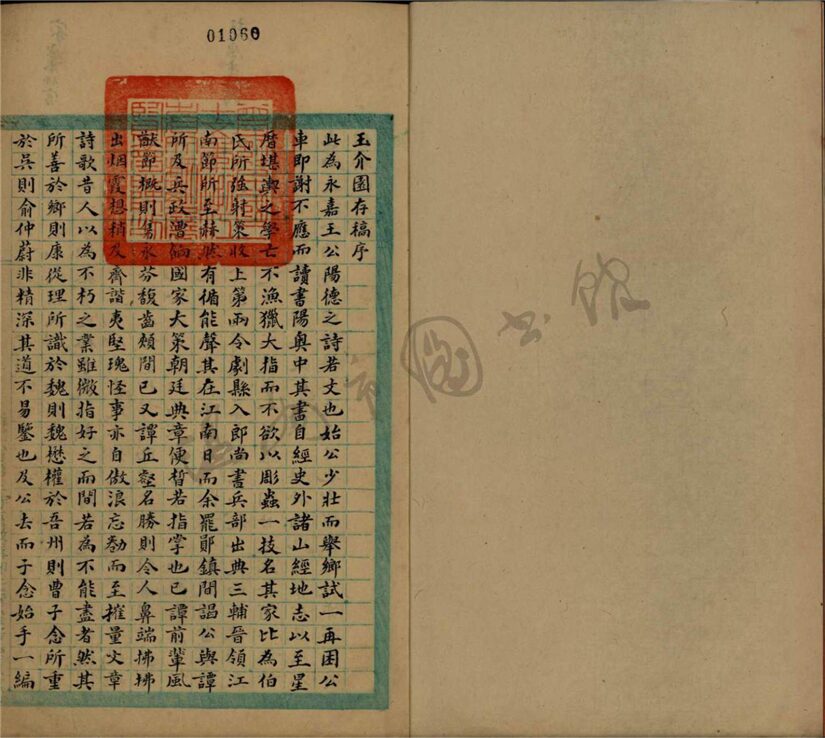 01060
玉介園存稿序
此為永嘉王公陽德之詩若文也始公少壯而舉鄉試一再困公
車即謝不應而讀書陽奧中其書自經史外諸山經地志以至星
曆堪輿之學亡不漁獵大指而不欲以彫蟲一技名其家比為伯
氏所強射策收上第兩令劇縣入郎尚書兵部出典三輔晉領江
南節所至赫然有循能聲其在江南日而余罷鄖鎮間謁公與譚
所及兵政漕餉國家大策朝廷典章便晳若指掌也已譚前輩風
猷節概則雋永芬馥齒頰間已又譚丘壑名勝則令人鼻端拂拂
出烟霞想稍及齊諧夷堅瑰怪事亦自倣浪忘勌而至搉量文章
詩歌昔人以為不朽之業雖微指好之而間若為不能盡者然其
所善於鄉則康從理所識於魏則魏懋權於吾州則曹子念所重
於吳則俞仲蔚非精深其道不易鑒也及公去而子念始手一編
圖書館